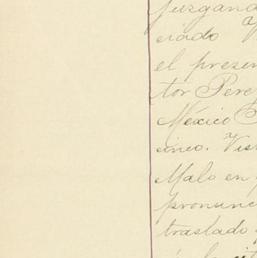 juzgand
ciado V
el presen
tor Pere
México C
cinco. Vist
Malo en
pronunc
traslado